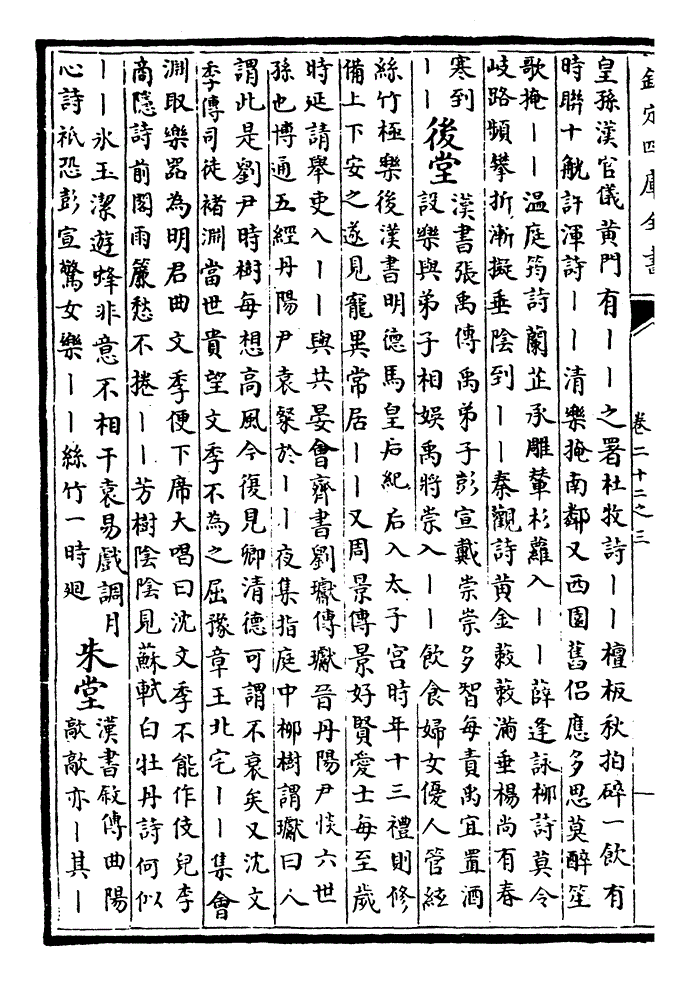 欽定四庫全書
卷二十二之三
皇孫漢官儀黄門有丨丨之署杜牧詩丨丨檀板秋拍碎一飲有
時聯十觥許渾詩丨丨清樂掩南鄰又西園舊侣應多思莫醉笙
歌掩丨丨温庭筠詩蘭芷承雕輦杉蘿入丨丨薛逢詠柳詩莫令
岐路頻攀折漸擬垂陰到丨丨秦觀詩黄金蔌蔌滿垂楊尚有春
寒到
丨丨
後堂
漢書張禹傳禹弟子彭宣戴崇崇多智每責禹宜置酒
設樂與弟子相娛禹將崇入丨丨飲食婦女優人管絃
絲竹極樂後漢書明德馬皇后紀后入太子宫時年十三禮則修
備上下安之遂見寵異常居丨丨又周景傳景好賢愛士每至歲
時延請舉吏入丨丨與共晏會齊書劉瓛傳瓛晉丹陽尹惔六世
孫也博通五經丹陽尹袁粲於丨丨夜集指庭中柳樹謂瓛曰人
謂此是劉尹時樹每想高風今復見卿清德可謂不衰矣又沈文
季傳司徒褚淵當世貴望文季不為之屈豫章王北宅丨丨集會
淵取樂器為明君曲文季便下席大唱曰沈文季不能作伎兒李
商隱詩前閣雨簾愁不捲丨丨芳樹陰陰見蘇軾白牡丹詩何似
丨丨氷玉潔遊蜂非意不相干袁易戲調月
心詩祇恐彭宣驚女樂丨丨絲竹一時廻
朱堂
漢書叙傳曲陽
歊歊亦丨其丨